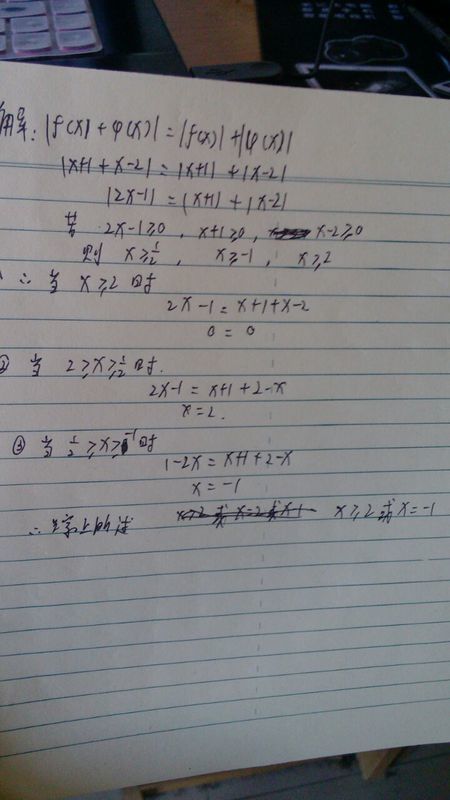 解: |f(x) + φ(x)| = |f(x)| + |φ(x)|
|x+1 + x-2| = |x+1| + |x-2|
|2x-1| = |x+1| + |x-2|
若 2x-1≥0, x+1≥0, x-2≥0
则 x≥1/2, x≥-1, x≥2
∴ 当 x≥2 时
2x-1 = x+1+x-2
0 = 0
② 当 2≥x≥1/2 时.
2x-1 = x+1+2-x
x=2.
③ 当 1/2≥x≥-1 时
1-2x = x+1+2-x
x = -1
∴ 综上所述 x≥2 或 x=2 或 x-1 x≥2 或 x=-1